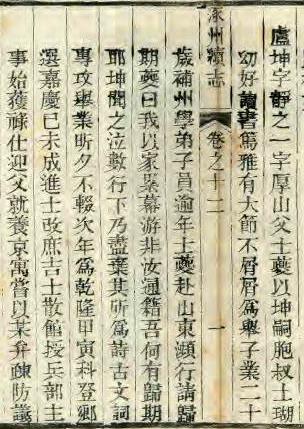 盧坤字靜之一字厚山父士夔以坤嗣胞叔士瑚
幼好讀書篤雅有大節不屑屑為舉子業二十
涿州續志 卷之十二 一
歲補州學弟子員逾年士夔赴山東瀕行請歸
期夔曰我以家累幕游非汝通籍吾何有歸期
耶坤聞之泣數行下乃盡棄其所為詩古文詞
專攻舉業昕夕不輟次年為乾隆甲寅科登鄉
選嘉慶己未成進士改庶吉士散館授兵部主
事始獲祿仕迎父就養京寓嘗以某弁陳防議